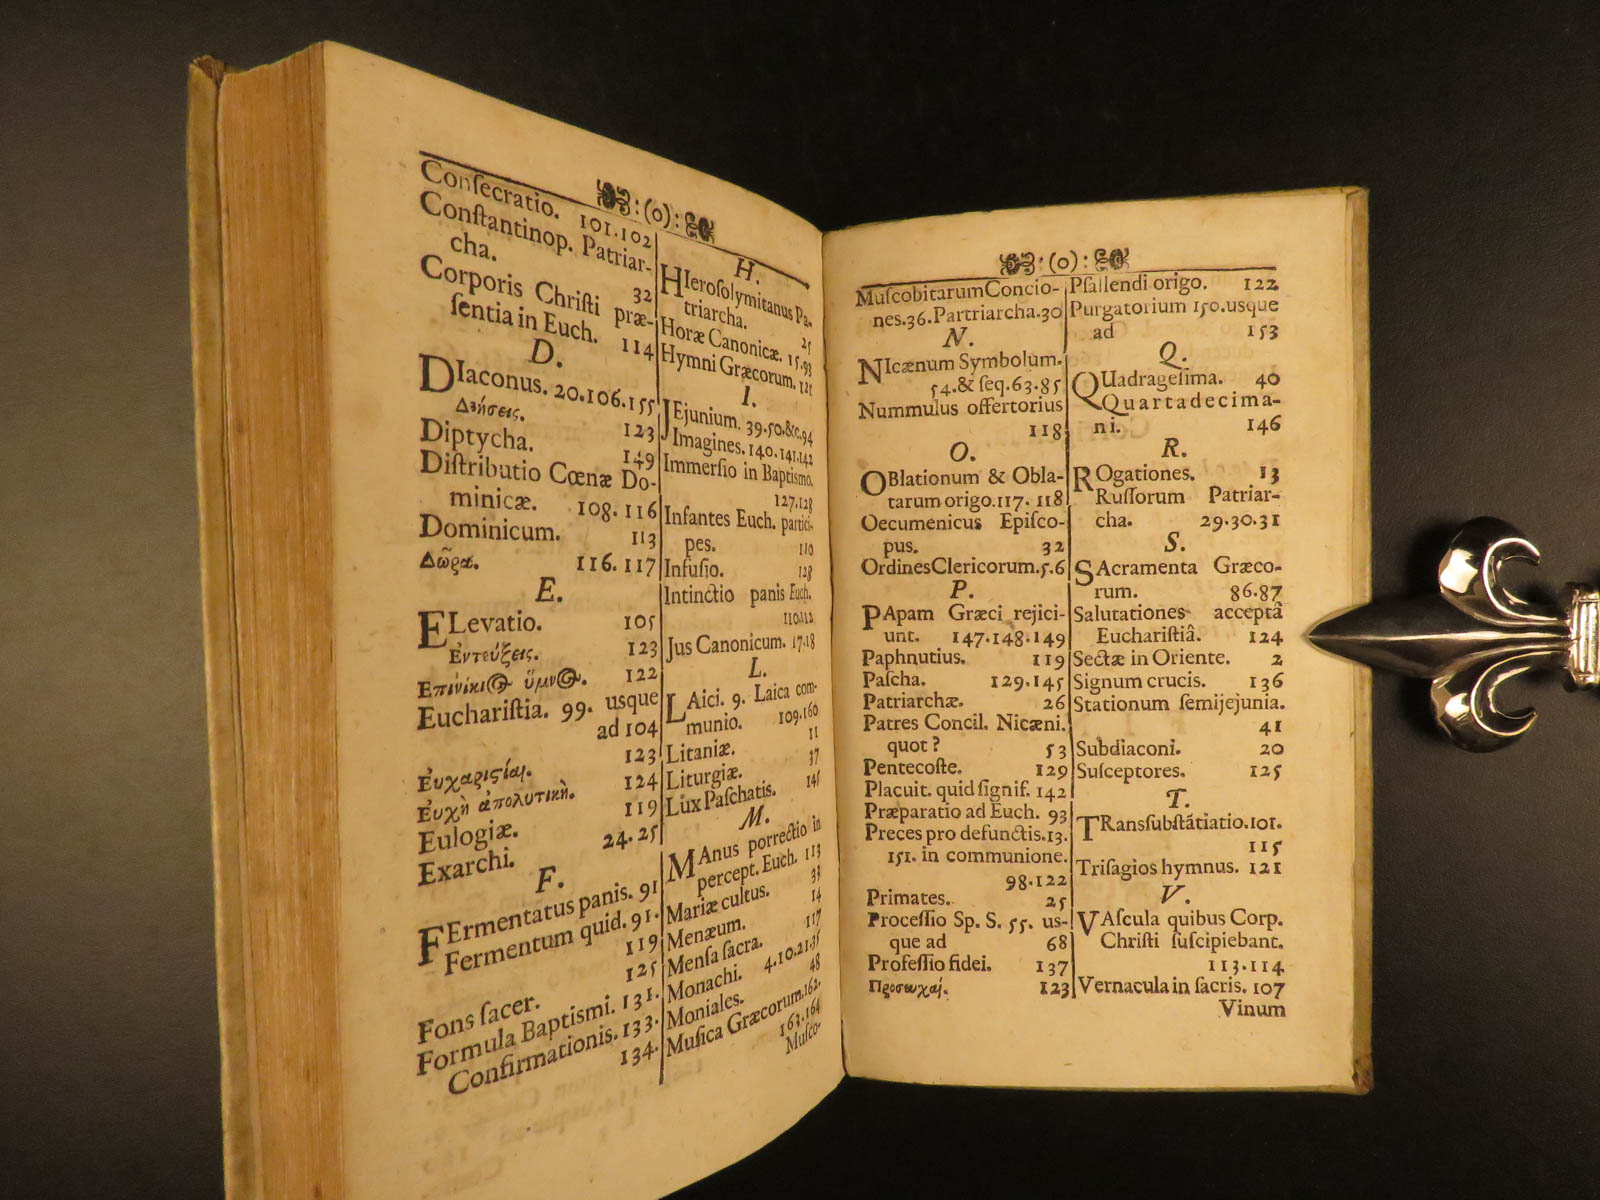 :(o):
Conſecratio. 101.102
Conſtantinop. Patriar-
cha. 32
Corporis Chriſti præ-
ſentia in Euch. 114
D.
DIaconus. 20.106.155
Δεήσεις. 123
Diptycha. 149
Diſtributio Cœnæ Do-
minicæ. 108.116
Dominicum. 113
Δῶρα. 116.117
E.
ELevatio. 105
Ἐντεύξεις. 123
Ἐπινίκιος ὕμνος. 122
Euchariſtia. 99. usque
ad 104
Εὐχαριστίαι. 123
Εὐχὴ ἀπολυτικὴ. 124
Eulogiæ. 119
Exarchi. 24.25
F.
FErmentatus panis. 91
Fermentum quid. 91.
119
Fons ſacer. 125
Formula Baptismi. 131.
Confirmationis. 133.
134.
H.
HIeroſolymitanus Pa-
triarcha. 25
Horæ Canonicæ. 15.93
Hymni Græcorum. 121
I.
JEjunium. 39.50.&c.94
Imagines. 140.141.142
Immerſio in Baptismo.
127.128
Infantes Euch. partici-
pes. 110
Infuſio. 128
Intinctio panis Euch.
110.112
Jus Canonicum. 17.18
L.
LAici. 9. Laica com-
munio. 109.160
Litaniæ. 11
Liturgiæ. 37
Lux Paſchatis. 145
M.
MAnus porrectio in
percept. Euch. 113
Mariæ cultus. 33
Menæum. 14
Menſa ſacra. 117
Monachi. 4.10.21.35
Moniales. 48
Muſica Græcorum. 162.
163.164
Muſco-
:(o):
Muſcobitarum Concio-
nes. 36. Partriarcha. 30
N.
NIcænum Symbolum.
54.& ſeq. 63.85
Nummulus offertorius
118
O.
OBlationum & Obla-
tarum origo. 117. 118
Oecumenicus Epiſco-
pus. 32
Ordines Clericorum. 5.6
P.
PApam Græci rejici-
unt. 147.148.149
Paphnutius. 119
Paſcha. 129.145
Patriarchæ. 26
Patres Concil. Nicæni.
quot? 53
Pentecoſte. 129
Placuit. quid ſignif. 142
Præparatio ad Euch. 93
Preces pro defunctis. 13.
151. in communione.
98.122
Primates. 25
Proceſſio Sp. S. 55. us-
que ad 68
Profeſſio fidei. 137
Προσευχαί. 123
Pſallendi origo. 122
Purgatorium 150. usque
ad 153
Q.
QUadrageſima. 40
Quartadecima-
ni. 146
R.
ROgationes. 13
Ruſſorum Patriar-
cha. 29.30.31
S.
SAcramenta Græco-
rum. 86.87
Salutationes acceptâ
Euchariſtiâ. 124
Sectæ in Oriente. 2
Signum crucis. 136
Stationum ſemijejunia.
41
Subdiaconi. 20
Suſceptores. 125
T.
TRansſubſtãtiatio. 101.
115
Triſagios hymnus. 121
V.
VAſcula quibus Corp.
Chriſti ſuſcipiebant.
113.114
Vernacula in ſacris. 107
Vinum